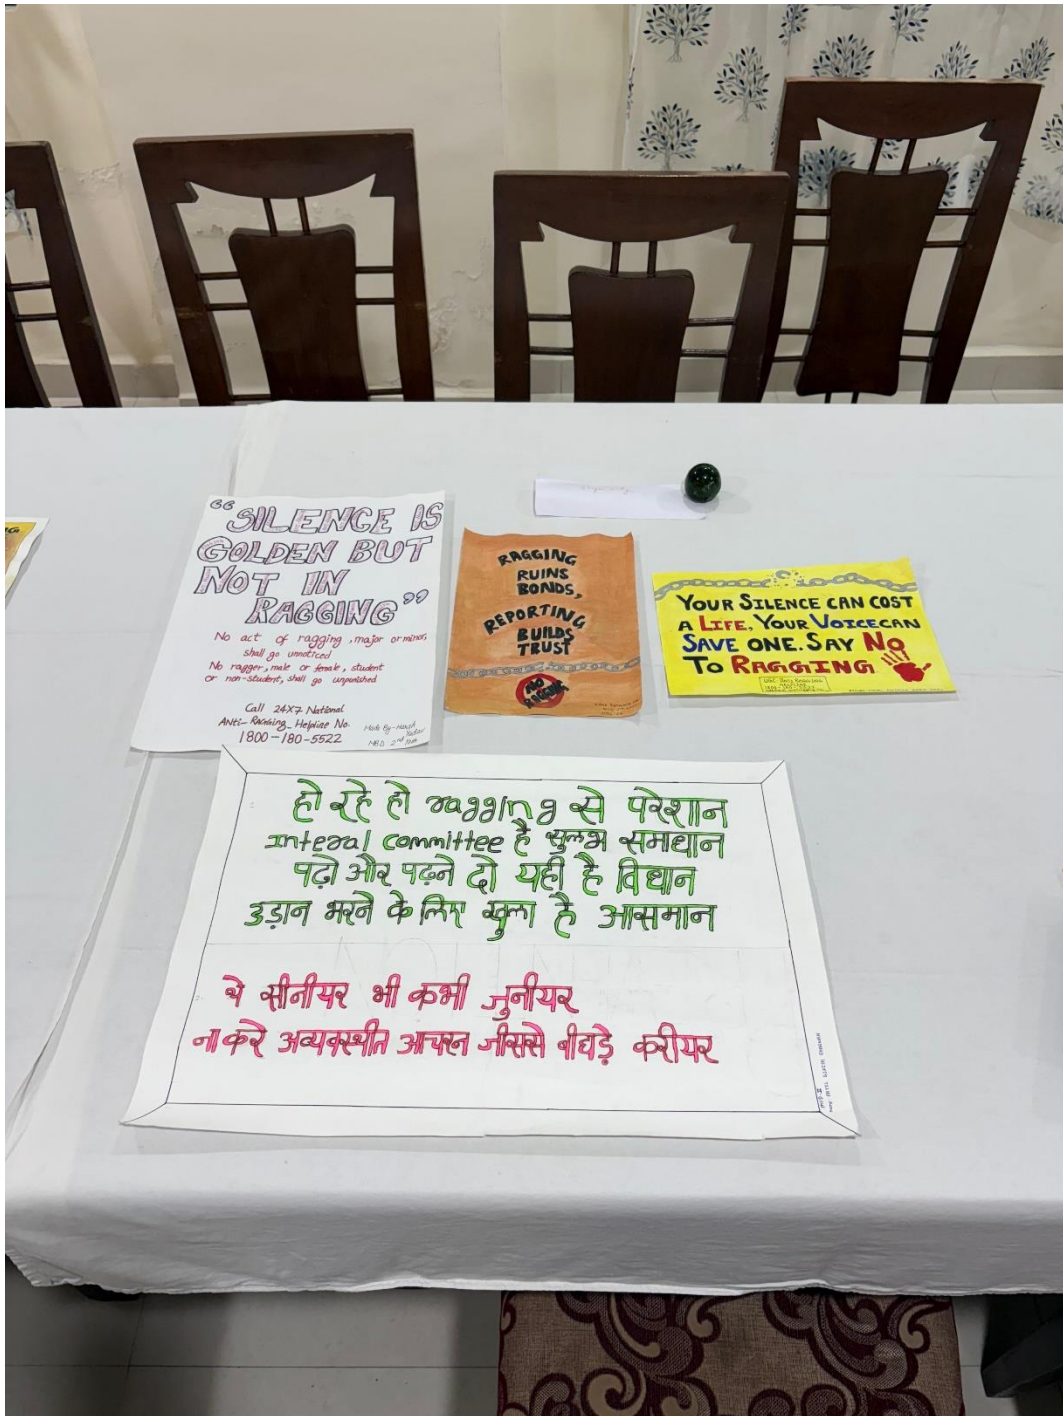 “SILENCE IS
GOLDEN BUT
NOT IN
RAGGING”
No act of ragging, major or minor,
shall go unnoticed
No ragger, male or female, student
or non-student, shall go unpunished
Call 24X7 National
Anti-Ragging Helpline No.
1800-180-5522
Made By-Harsh
Yadav
MBD 2nd Year
RAGGING
RUINS
BONDS,
REPORTING
BUILDS
TRUST
NO
RAGGING
YOUR SILENCE CAN COST
A LIFE, YOUR VOICE CAN
SAVE ONE. SAY NO
TO RAGGING
1800-180-5522
हो रहे हो ragging से परेशान
interal committee है सुलभ समाधान
पढ़ो और पढ़ने दो यही है विधान
उड़ान भरने के लिए खुला है आसमान
थे सीनीयर भी कभी जुनीयर
ना करे अव्यवस्थीत आचरन जीससे बीघड़े करीयर